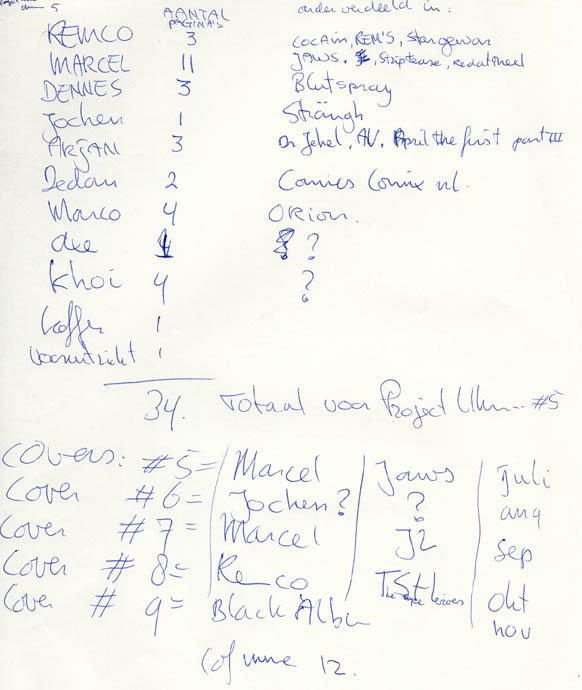 5 AANTAL PAGINA'S onderverdeeld in:
REMCO 3 COCAin, REM'S, Stargewar
MARCEL 11 JAWS, Striptease, redactineel
DENNES 3 Blutspray
Jochen 1 Strängh
ARJAN 3 Dr Jekel, AV. April the first part III
Dedan 2 Comics Comix nl.
Marco 4 ORion.
4 ?
Khoi 4 ?
koffer 1
Vooruitzicht 1
34. Totaal voor Project #5
COVERS: #5= Marcel Jaws Juli
Cover #6= Jochen? ? aug
Cover #7= Marcel J2 sep
Cover # 8= Remco TSt okt
Cover # 9= Black Album nov
12.